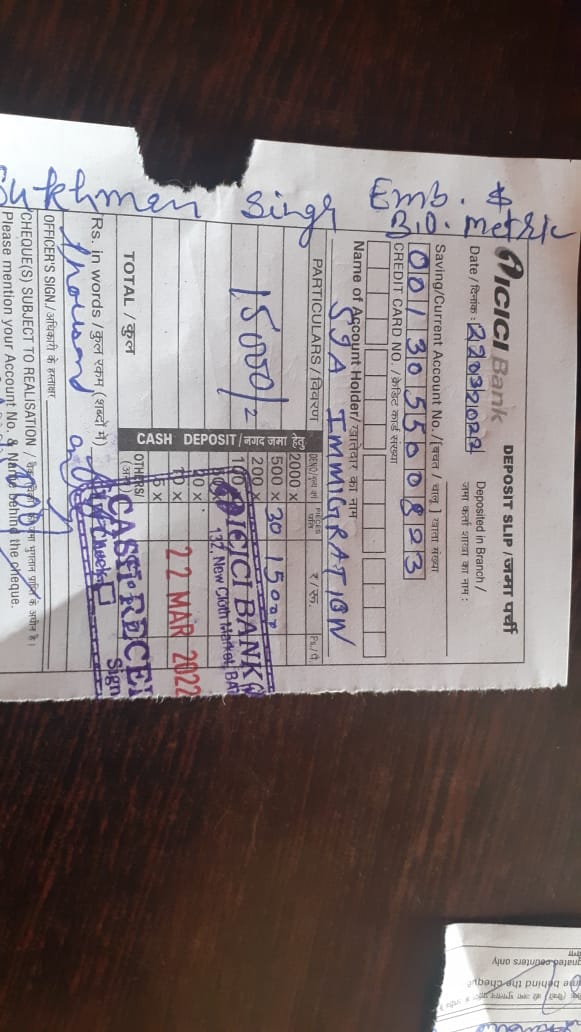 Sukhman Singh Emb. $
Bio. metric
ICICI Bank
DEPOSIT SLIP / जमा पर्ची
Date / दिनांक : 22032022
Deposited in Branch /
जमा कर्ता शाखा का नाम :
Saving/Current Account No. / [बचत / चालू] खाता संख्या
001305500893
CREDIT CARD NO. / क्रेडिट कार्ड संख्या
Name of Account Holder/खातेदार का नाम
SIA IMMIGRATION
PARTICULARS / विवरण
CASH DEPOSIT / नगद जमा हेतु
PIECES
₹ / रू.
Ps./ पै.
2000 x
500 x 30 15000
200 x
15000/-
10 x
5 x
OTHERS/
TOTAL / कुल
ICICI BANK
132, New Cloth Market,
22 MAR 2022
CASH RECEI
Sign
Rs. in words / कुल रकम (शब्दों में)
thousand
OFFICER'S SIGN./अधिकारी के हस्ताक्षर
CHEQUE(S) SUBJECT TO REALISATION /
Please mention your Account No. & Name behind the cheque.
counters only
behind the cheque